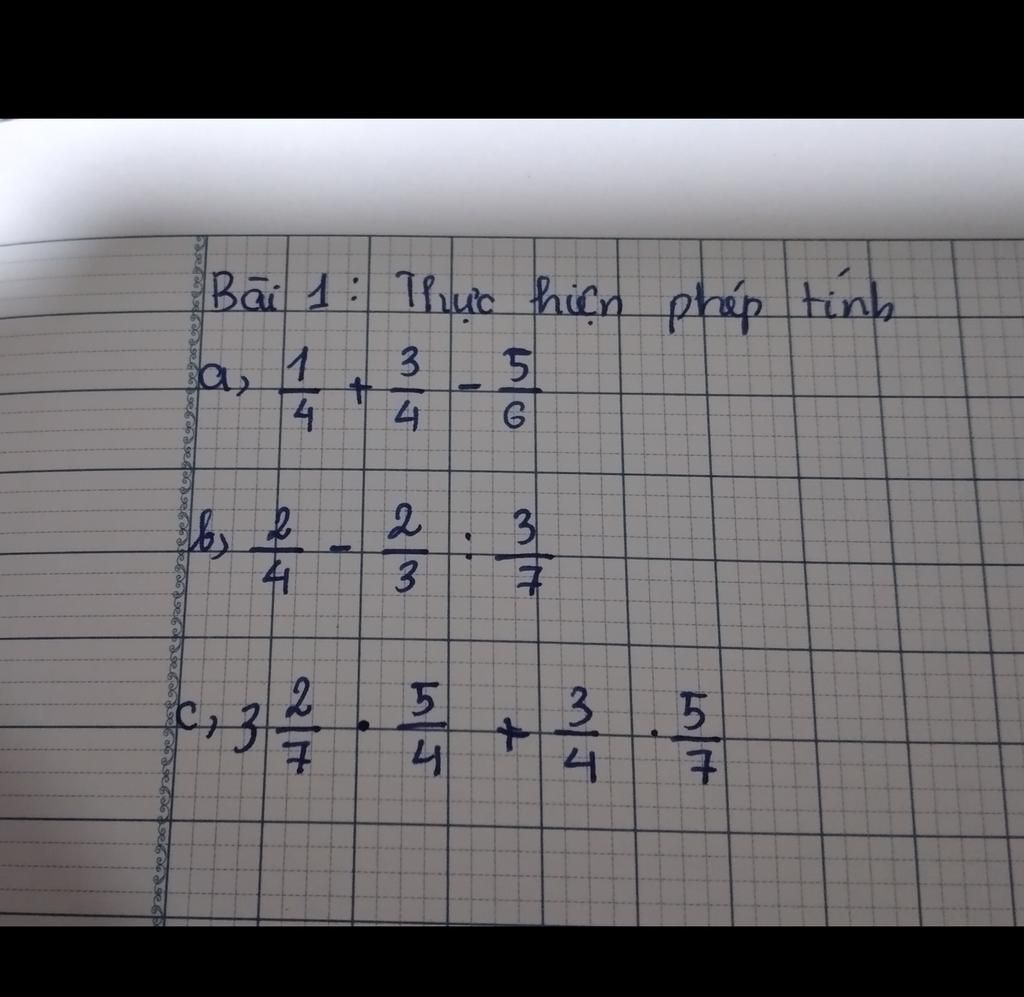 Bài 1: Thực hiện phép tính
a, 1/4 + 3/4 - 5/6
b, 2/4 - 2/3 : 3/7
c, 3 2/7 . 5/4 + 3/4 . 5/7